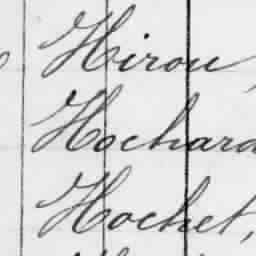 Hirou,
Hochard
Hochet,